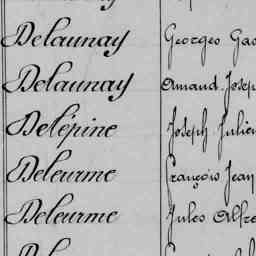 Delaunay Georges
Delaunay Amand Josep
Delépine Joseph Julien
Deleurme François Jean
Deleurme Jules Alfre